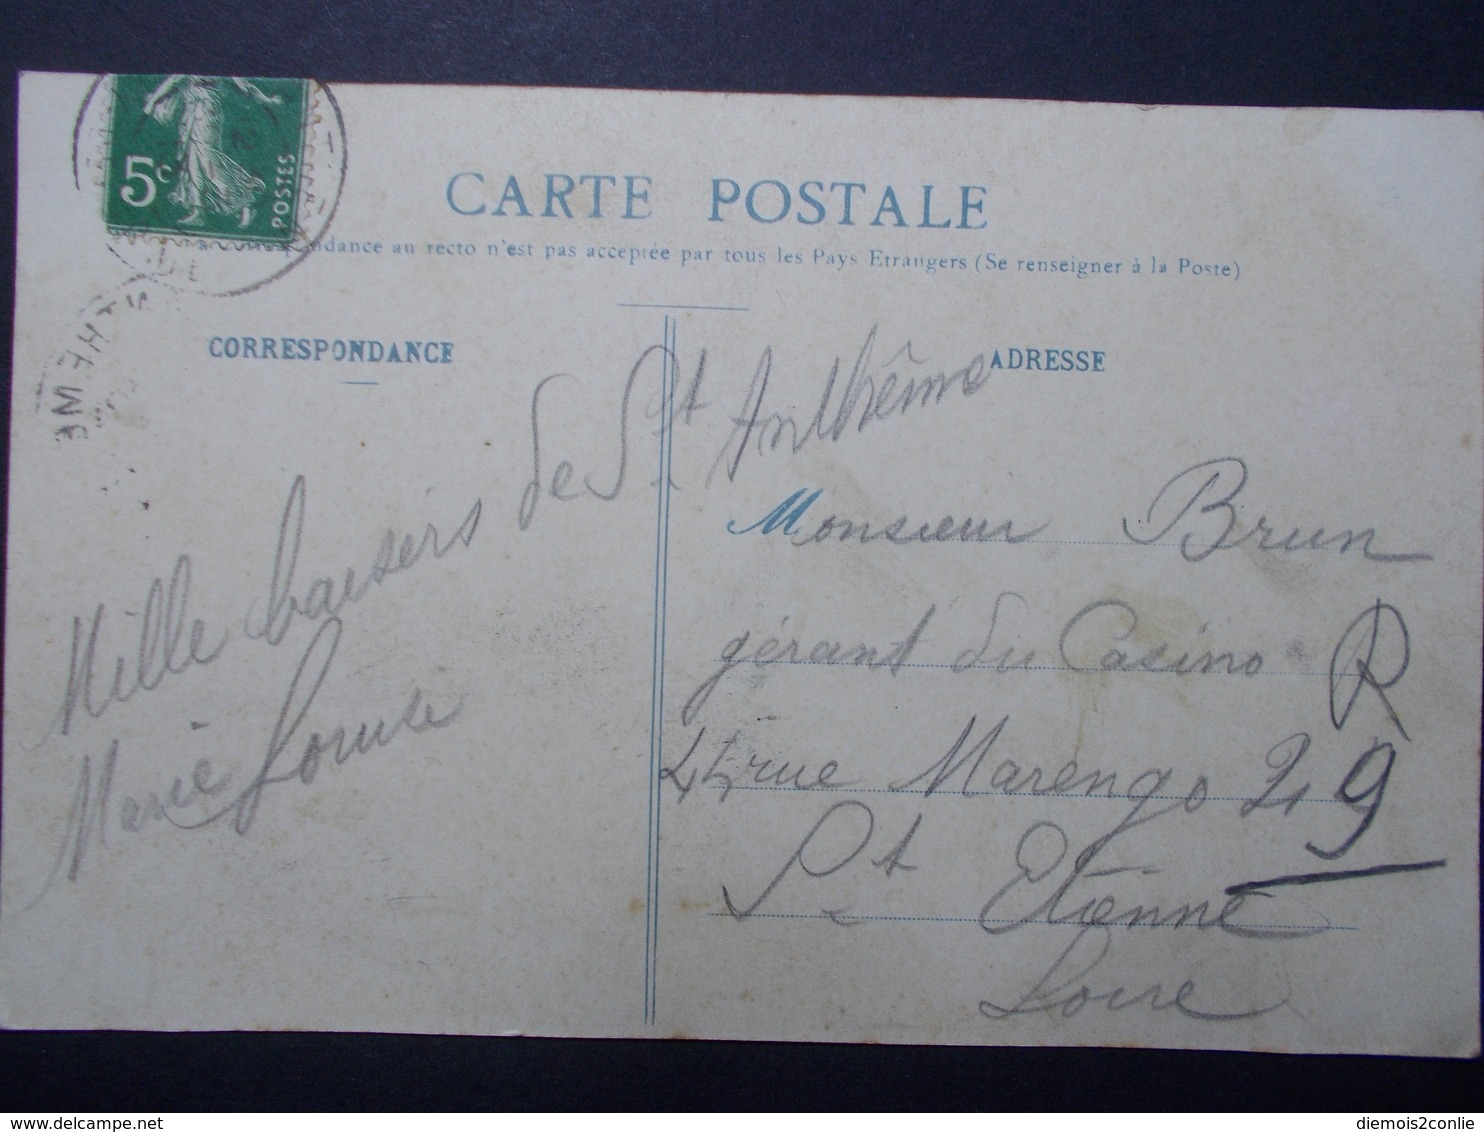 5c
POSTES
12
CARTE POSTALE
dance au recto n'est pas acceptée par tous les Pays Etrangers (Se renseigner à la Poste)
THÈME
CORRESPONDANCE
Mille baisers de St Anthême
Marie Louise
ADRESSE
Monsieur Brun
gérant du Casino
R
44 rue Marengo
9
St Etienne
Loire
diemois2conlie